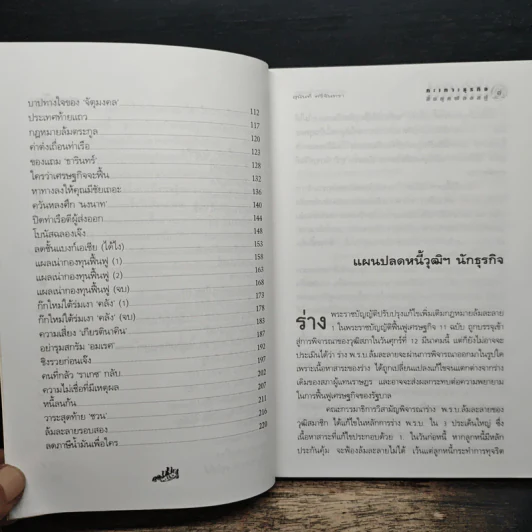 บาปทางใจของ 'จัตุมงคล' 112
ประเทศท้ายแถว 117
กฎหมายล้มตระกูล 120
ค่าต๋งเถื่อนท่าเรือ 123
ของแถม 'ธารินทร์' 128
ใครว่าเศรษฐกิจจะฟื้น 132
หาทางลงให้คุณมีชัยเถอะ 136
ควันหลงศึก 'นงนาท' 140
ปิดท่าเรือตีผู้ส่งออก 144
โบนัสฉลองเจ๊ง 148
ลดชั้นแบงก์เอเซีย (ได้ไง) 153
แผลเน่ากองทุนฟื้นฟู (1) 158
แผลเน่ากองทุนฟื้นฟู (2) 163
แผลเน่ากองทุนฟื้นฟู (จบ) 168
ก๊กใหม่ใต้ร่มเงา 'คลัง' (1) 173
ก๊กใหม่ใต้ร่มเงา 'คลัง' (จบ) 178
ความเสี่ยง 'เกียรตินาคิน' 183
อย่ารุมสกรัม 'อมเรศ' 187
ชิงรวยก่อนเจ๊ง 192
คนที่กลัว 'ราเกซ' กลับ 197
ความไม่เชื่อที่มีเหตุผล 202
หนี้ลนก้น 207
วาระสุดท้าย 'ชวน' 211
ล้มละลายรอบสอง 216
ลดภาษีน้ำมันเพื่อใคร 220
แผนปลดหนี้วุฒิฯ นักธุรกิจ
ร่าง พระราชบัญญัติปรับปรุงแก้ไขเพิ่มเติมกฎหมายล้มละลาย
1 ในพระราชบัญญัติฟื้นฟูเศรษฐกิจ 11 ฉบับ ถูกบรรจุเข้า
สู่การพิจารณาของวุฒิสภาในวันศุกร์ที่ 12 มีนาคมนี้ แต่ก็ยังไม่อาจจะ
ประเมินได้ว่า ร่าง พ.ร.บ.ล้มละลายจะผ่านการพิจารณาออกมาในรูปใด
เพราะเนื้อหาสาระของร่าง ได้ถูกเปลี่ยนแปลงแก้ไขจนแตกต่างจากร่าง
เดิมของสภาผู้แทนราษฎร และอาจจะส่งผลกระทบต่อความพยายาม
ในการฟื้นฟูเศรษฐกิจของรัฐบาล
คณะกรรมาธิการวิสามัญพิจารณาร่าง พ.ร.บ.ล้มละลายของ
วุฒิสมาชิก ได้แก้ไขในหลักการร่าง พ.ร.บ. ใน 3 ประเด็นใหญ่ ซึ่ง
เนื้อหาสาระที่แก้ไขประกอบด้วย 1. ในวันก่อหนี้ หากลูกหนี้มีหลัก
ประกันคุ้ม จะฟ้องล้มละลายไม่ได้ เว้นแต่ลูกหนี้กระทำการทุจริต